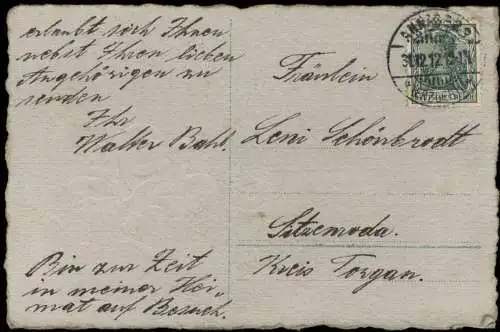 erlaubt sich Ihnen
nebst Ihren lieben
Angehörigen zu
senden
Ihr
Walter Bahl.
Bin zur Zeit
in meiner Hei-
mat auf Besuch.
31.12.12
Fräulein
Leni Schönbrodt
Sitzenroda.
Kreis Torgau.